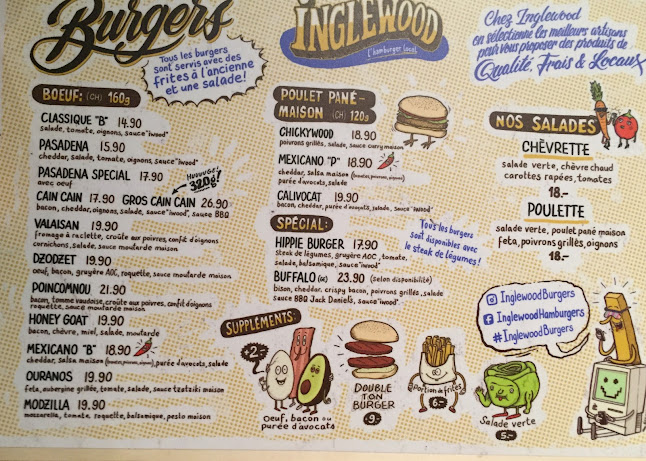 Burgers
Tous les burgers
sont servis avec des
frites à l'ancienne
et une salade!
BOEUF: (CH) 160g
CLASSIQUE "B" 14.90
salade, tomate, oignons, sauce "iwood"
PASADENA 15.90
cheddar, salade, tomate, oignons, sauce "iwood"
PASADENA SPECIAL 17.90
avec oeuf
HUUUUGE!
320g!
CAIN CAIN 17.90 GROS CAIN CAIN 26.90
bacon, cheddar, oignons, salade, sauce "iwood", sauce BBQ
VALAISAN 19.90
fromage à raclette, croûte aux poivres, confit d'oignons
cornichons, salade, sauce moutarde maison
DZODZET 19.90
oeuf, bacon, gruyère AOC, roquette, sauce moutarde maison
POINCOMNOU 21.90
bacon, tomme vaudoise, croûte aux poivres, confit d'oignons
roquette, sauce moutarde maison
HONEY GOAT 19.90
bacon, chèvre, miel, salade, moutarde
MEXICANO "B" 18.90
cheddar, salsa maison (tomates, poivrons, oignons), purée d'avocats, salade
OURANOS 19.90
feta, aubergine grillée, tomate, salade, sauce tzatziki maison
MODZILLA 19.90
mozzarella, tomate, roquette, balsamique, pesto maison
INGLEWOOD
l'hamburger local
POULET PANÉ-
MAISON (CH) 120g
CHICKYWOOD 18.90
poivrons grillés, salade, sauce curry maison
MEXICANO "P" 18.90
cheddar, salsa maison (tomates, poivrons, oignons)
purée d'avocats, salade
CALIVOCAT 19.90
bacon, cheddar, purée d'avocats, salade, sauce "iwood"
SPÉCIAL:
HIPPIE BURGER 17.90
steak de légumes, gruyère AOC, tomate,
salade, balsamique, sauce "iwood"
BUFFALO 23.90 (selon disponibilité)
bison, cheddar, crispy bacon, poivrons grillés, salade
sauce BBQ Jack Daniels, sauce "iwood"
Tous les burgers
sont disponibles avec
le steak de légumes!
SUPPLÉMENTS:
+2.-
Oeuf, bacon ou
purée d'avocats
DOUBLE
TON
BURGER
9.-
Portion de frites
6.-
Salade verte
5.-
Chez Inglewood
on sélectionne les meilleurs artisans
pour vous proposer des produits de
Qualité, Frais & Locaux
NOS SALADES
CHÈVRETTE
salade verte, chèvre chaud
carottes rapées, tomates
18.-
POULETTE
salade verte, poulet pané maison
feta, poivrons grillés, oignons
18.-
InglewoodBurgers
InglewoodHamburgers
#InglewoodBurgers